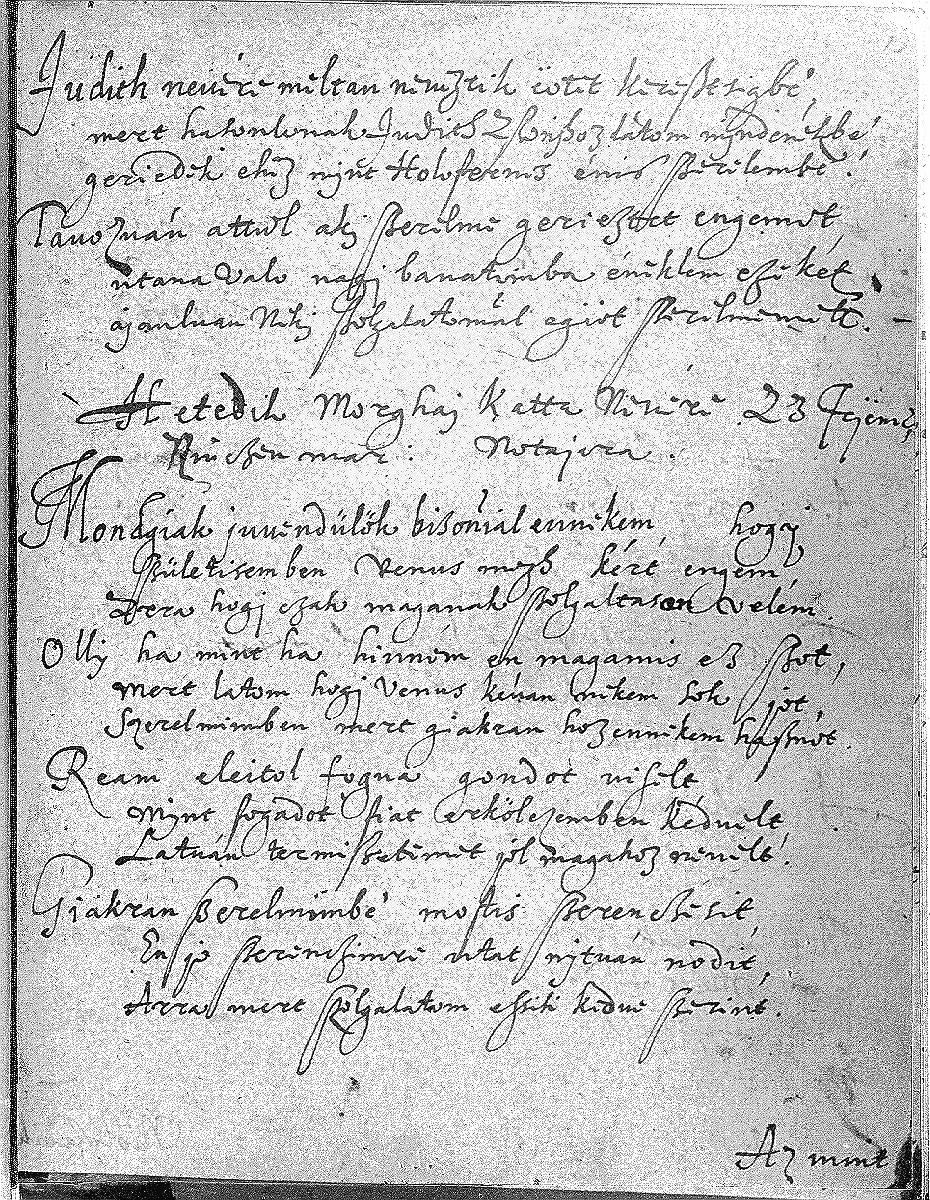 Judith nevire meltan neveztik iotet kereßtsigbé,
mert hasonlonak Judith Aßonhoz latom myndenekbe
geriedek ehez mynt Holofernis énis ßerelembe.
Tavozván attul aki ßerelme geriesztet engemet,
utana valo nagj banatomba éneklem ezeket
ajanluan Nekj ßolgalatomal egiot ßerelmemett.
Hetedik Morghaj Katta Nevére 23 Jejemi,
Rinchen mar: Notajara.
Mondgiak juvendülök bisonial ennekem, hogy
ßületisemben Venus mozb kért engem,
Arra hogj czak maganak ßolgaltason velem.
Olly ha mint ha hinném en magamis ez ßot,
mert latom hogj Venus kévan nékem sok jot,
Szerelmimben mert giakran hoz ennekem haßnot.
Ream eleitol fogva gondot viselt,
Mynt fogadot fiat erkölczemben kedvelt,
Latván termißetemet jol magahoz nevelt.
Giakran ßerelmimbé mostis ßerenchésit,
En jo ßerenchimre utat nytván nodit,
Arra mert ßolgalatom essik kedve ßerint.
Az mint